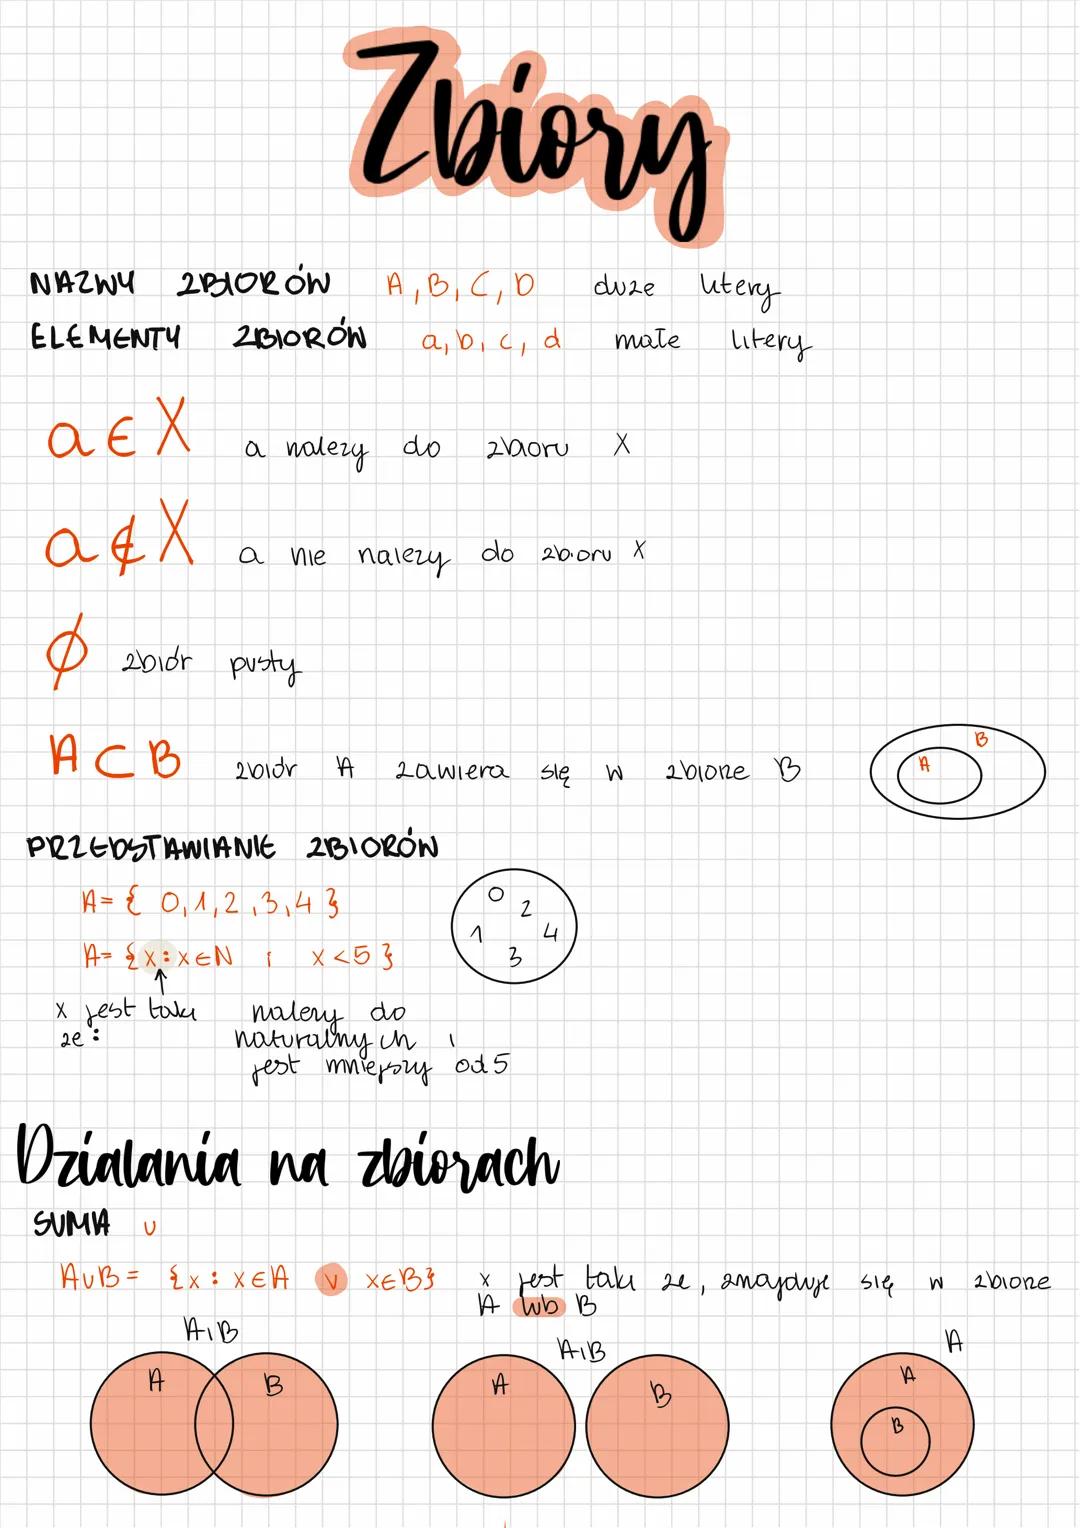 Zbiory
NAZWY ZBIORÓW A, B, C, D duże litery
ELEMENTY ZBIORÓW a, b, c, d małe litery
a ∈ X a należy do zbioru X
a ∉ X a nie należy do zbioru X
∅ zbiór pusty
A ⊂ B zbiór A zawiera się w zbiorze B
B
A
PRZEDSTAWIANIE ZBIORÓW
A = { 0, 1, 2, 3, 4 }
0
2
1
4
3
A = { x : x ∈ N i x < 5 }
x jest taki należy do
że : naturalnych i
jest mniejszy od 5
Dzialania na zbiorach
SUMA ∪
A∪B = { x : x ∈ A ∨ x ∈ B } x jest taki że, znajduje się w zbiorze
A lub B
A i B
A B
A i B
A B
A
A
B